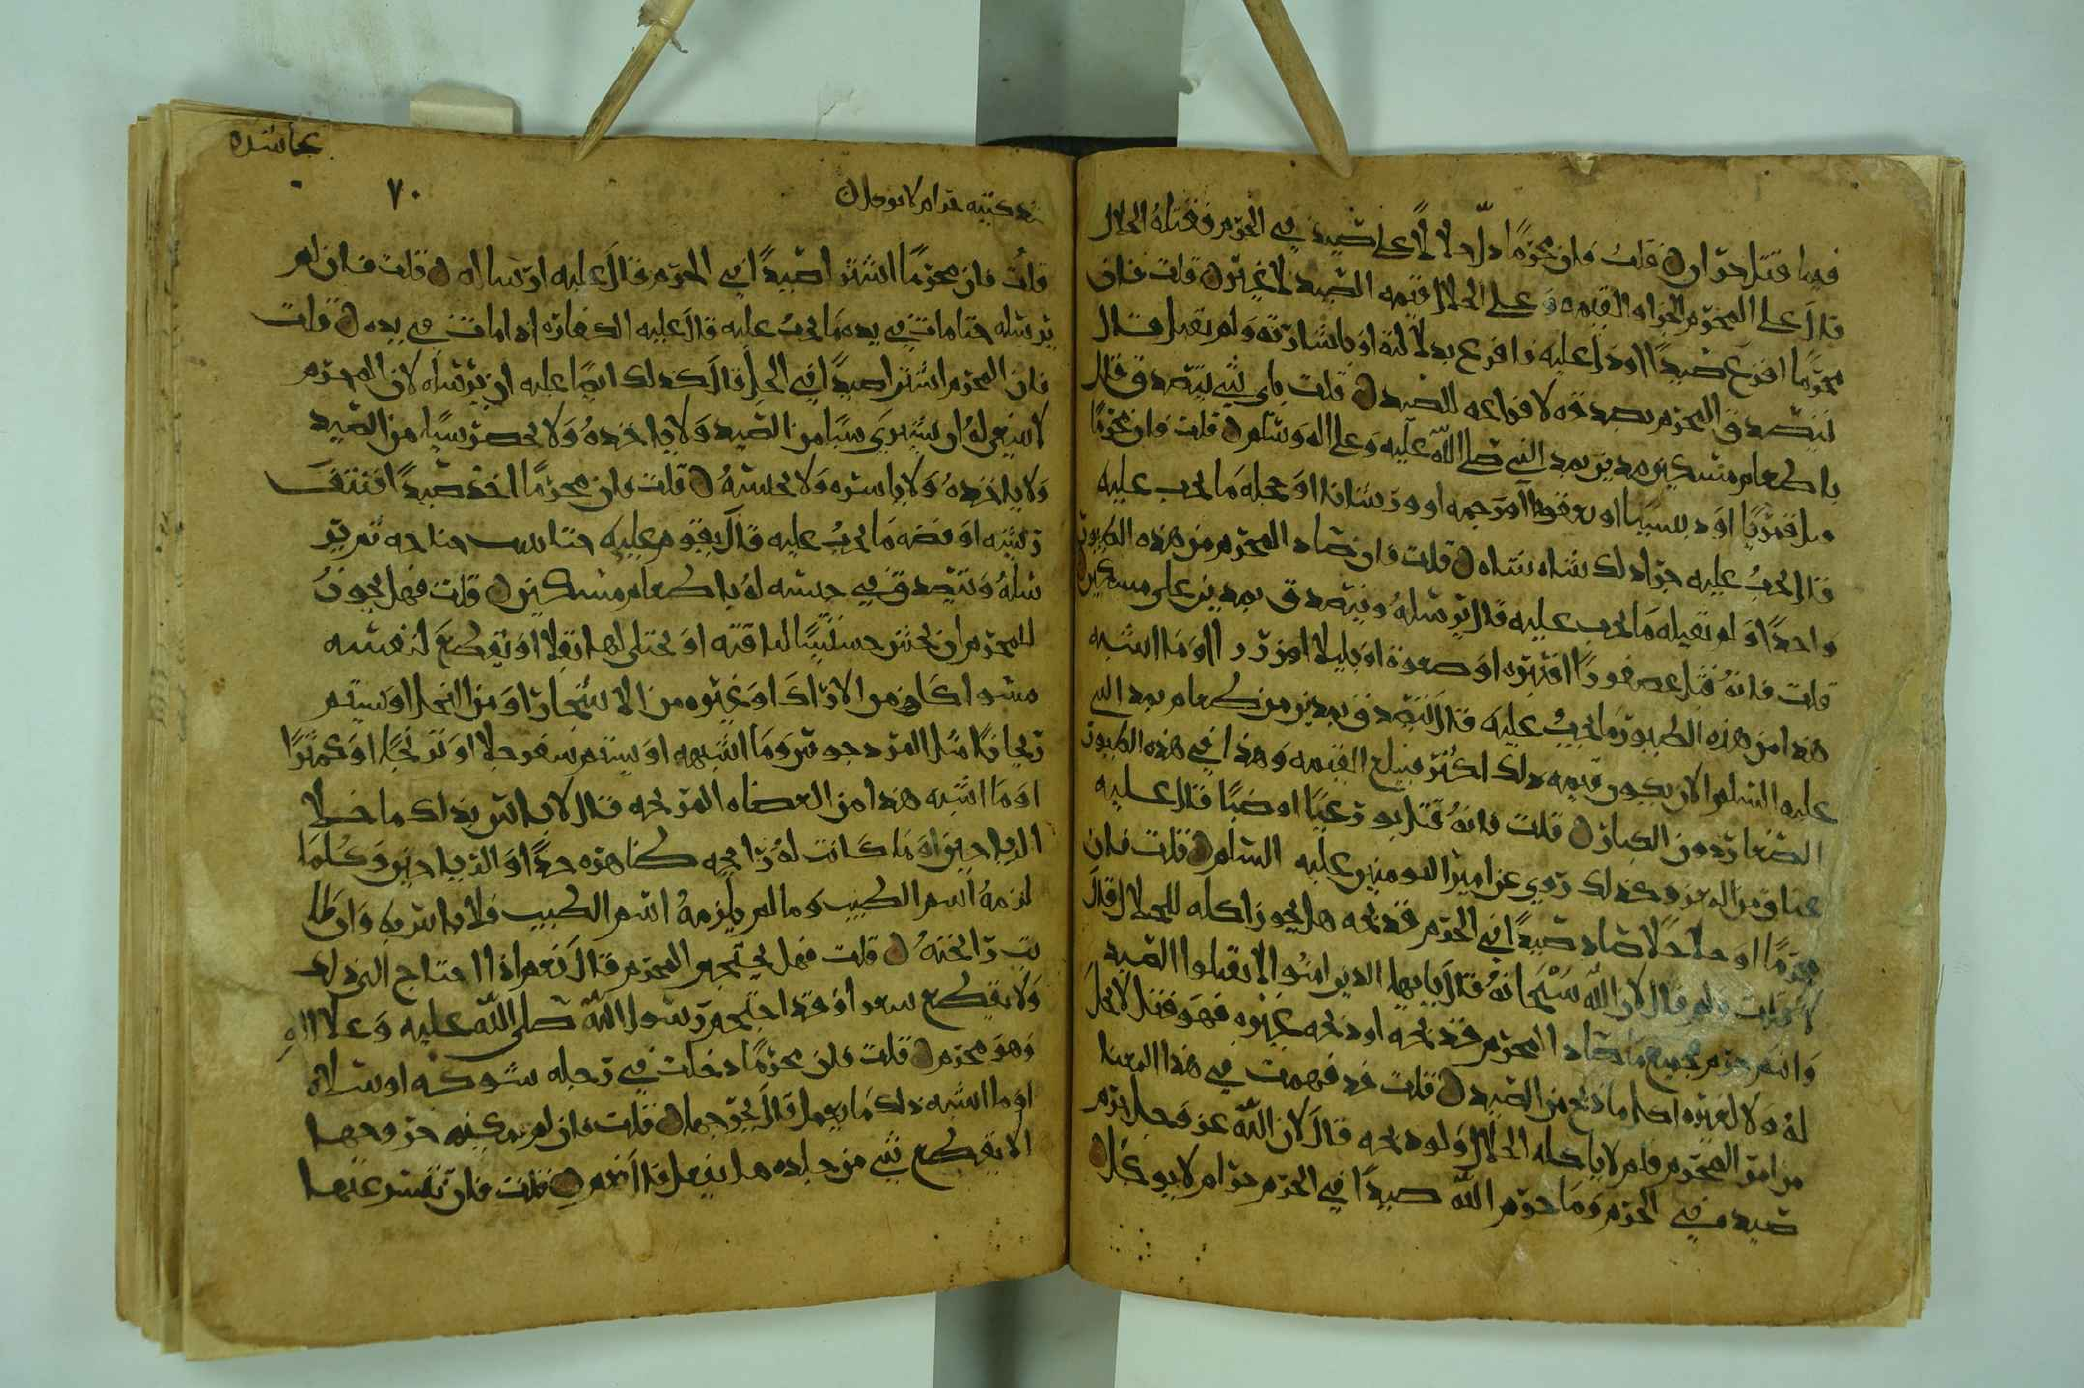 فيها قتل حرّا ن قلتُ فان محرمًا دلّ حلالاً على صيد في الحرم فقتلهُ الحلال
قال على المحرم الجزا والقيمه وعلى الحلال قيمه الصيد لا غير ن قلت فان
محرمًا افزع صيدًا او دل عليه فافزع بدلالته او باشارته ولم يقتل قال
يتصدق المحرم بصدقه لافزاعه للصيد ن قلت باي شي يتصدق قال
باطعام مسكين مدين بمد النبي صلى الله عليه وعلى اله وسلم ن قلت فان محرمًا
قتل قمريًا او دبسيًا او يعقوبًا او رخمه او ورشانا او حجله ما يجب عليه
قال يجبُ عليه جزا ذلك شاه شاه ن قلت فان صاد المحرم من هذه الطيور
واحدًا ولم يقتله ما يجب عليه قال يرسلهُ ويتصدق بمدين على مسكين
قلت فانهُ قتل عصفورًا او قنبره او صعوة او بلبلا او زرزرا او ما اشبه
هذا من هذه الطيور ما يجبُ عليه قال يتصدق بمدين من طعام بمد النبي
عليه السلم الا ان يكون قيمه ذلك اكثر فيبلغ القيمه وهذا في هذه الطيور
الصغار دون الكبار ن قلت فانهُ قتل يربوعًا او ضبًا قال عليه
عناق من المعز وكذلك روي عن امير المومنين عليه السلم ن قلت فان
محرمًا او حلالًا صاد صيدًا في الحرم فذبحه هل يجوز اكله للحلال قال
لا قلت ولم قال لان الله سبحانهُ قال يايها الذين امنوا لا تقتلوا الصيد
وانتم حرم فجميع ما صاد المحرم فذبحه او ذبحه غيره فهو قتل لا يحل
لهُ ولا لغيره اكل ما ذبح من الصيد ن قلت قد فهمت في هذا المعنا
من امر المحرم فلم لا ياكله الحلال ولو ذبحه قال لان الله عز وجل حرم
صيده في الحرم وما حرم الله صيدًا في الحرم حرام لا يوكل ن
عاشره
٧٠
قلتُ فان محرمًا اشترا صيدًا في الحرم قال عليه ارساله ن قلت فان لم
يرسله حتا مات في يده ما يجبُ عليه قال عليه الكفاره اذا مات في يده ن قلت
فان المحرم اشترا صيدًا في الحل قال كذلك ايضًا عليه ان يرسله لان المحرم
لا ينبغي لهُ ان يشتري شيًا من الصيد ولا ياخذهُ ولا يحضر شيًا من الصيد
ولا ياخذهُ ولا ياسره ولا يحبسهُ ن قلت فان محرمًا اخذ صيدًا فنتف
ريشه او قصه ما يجبُ عليه قال يقوم عليه حتا ينبت جناحه ثم ير
سلهُ ويتصدق في حبسه لهُ باطعام مسكين ن قلت فهل يجوزُ
للمحرم ان يحش حشيشًا لناقته او يختلي لها بقلا او يقطع لنفسه
مسواكا من الاراك او غيره من الاشجار او من النخل او يشم
ريحانًا مثل المردجوش وما اشبهه او يشم سفرجلا او ترنجًا او كمثرًا
او ما اشبه هذا من العضاه المريحه قال لا باس بذلك ما خلا
الرياحين او ما كانت لهُ رايحه كهذه جدًا والرياحين وكلما
لزمهُ اسم الطيب وما لم يلزمهُ اسم الطيب فلا باس به وان طا
بت رايحتهُ ن قلت فهل يحتجم المحرم قال نعم اذا احتاج الى ذلك
ولا يقطع شعرا وقد احتجم رسول الله صلى الله عليه وعلى اله
وهو محرم ن قلت فان محرمًا دخلت في رجله شوكه او سلاه
او ما اشبه ذلك ما يعمل قال يخرجها ن قلت فان لم يمكنه خروجها
الا بقطع شي من جلده هل يفعل قال نعم ن قلت فان تعسر عنها